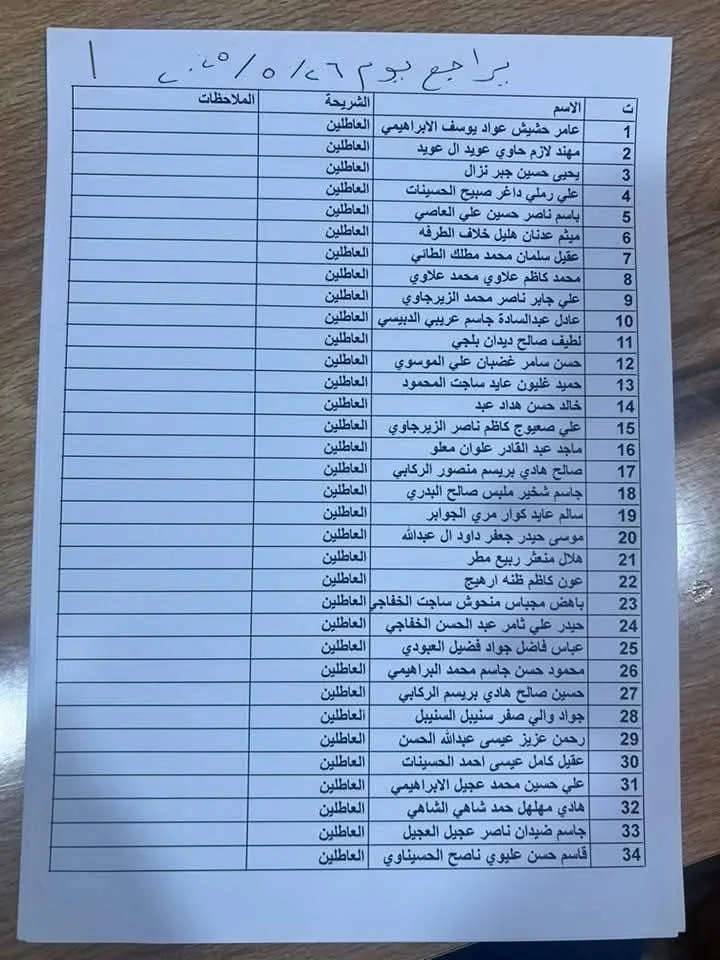 يراجع يوم ٢٦ / ٥ / ٢٠٢٥
ت الاسم الشريحة الملاحظات
1 عامر حشيش عواد يوسف الابراهيمي العاطلين
2 مهند لازم حاوي عويد ال عويد العاطلين
3 يحيى حسين جبر نزال العاطلين
4 علي رملي داغر صبيح الحسينات العاطلين
5 باسم ناصر حسين علي العاصي العاطلين
6 ميثم عدنان هليل خلاف الطرفه العاطلين
7 عقيل سلمان محمد مطلك الطائي العاطلين
8 محمد كاظم علاوي محمد علاوي العاطلين
9 علي جابر ناصر محمد الزيرجاوي العاطلين
10 عادل عبدالسادة جاسم عريبي الدبيسي العاطلين
11 لطيف صالح ديدان بلجي العاطلين
12 حسن سامر غضبان علي الموسوي العاطلين
13 حميد غليون عايد ساجت المحمود العاطلين
14 خالد حسن هداد عبد العاطلين
15 علي صعيوج كاظم ناصر الزيرجاوي العاطلين
16 ماجد عبد القادر علوان معلو العاطلين
17 صالح هادي بريسم منصور الركابي العاطلين
18 جاسم شخير ملبس صالح البدري العاطلين
19 سالم عايد كوار مري الجوابر العاطلين
20 موسى حيدر جعفر داود ال عبدالله العاطلين
21 هلال منعثر ربيع مطر العاطلين
22 عون كاظم ظنه ارهيج العاطلين
23 باهض مجباس منحوش ساجت الخفاجي العاطلين
24 حيدر علي ثامر عبد الحسن الخفاجي العاطلين
25 عباس فاضل جواد فضيل العبودي العاطلين
26 محمود حسن جاسم محمد البراهيمي العاطلين
27 حسين صالح هادي بريسم الركابي العاطلين
28 جواد والي صفر سنيبل السنيبل العاطلين
29 رحمن عزيز عيسى عبدالله الحسن العاطلين
30 عقيل كامل عيسى احمد الحسينات العاطلين
31 علي حسين محمد عجيل الابراهيمي العاطلين
32 هادي مهلهل حمد شاهي الشاهي العاطلين
33 جاسم ضيدان ناصر عجيل العجيل العاطلين
34 قاسم حسن عليوي ناصح الحسيناوي العاطلين